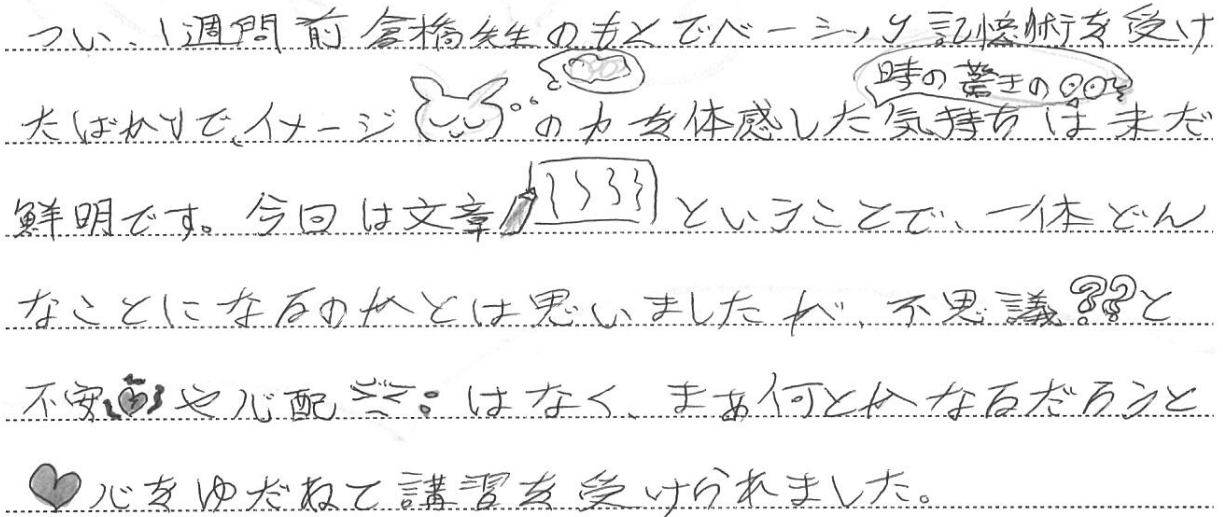 つい、1週間前倉橋先生のもとでベーシック記憶術を受け
時の驚きの
たばかりで、イメージの力を体感した気持ちは未だ
鮮明です。今回は文章ということで、一体どん
なことになるのかとは思いましたが、不思議??と
不安や心配はなく、まあ何とかなるだろうと
心をゆだねて講習を受けられました。